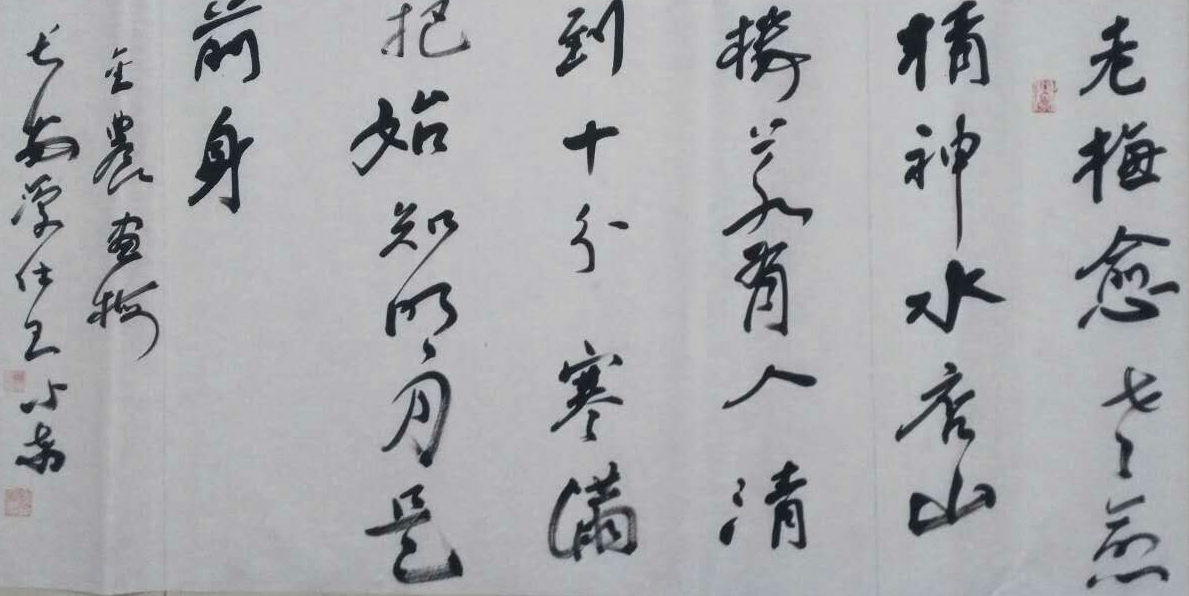 老梅愈老愈
精神水店山
楼若有人清
到十分寒满
把始知明月是
前身
金農画梅
长安学仕王小